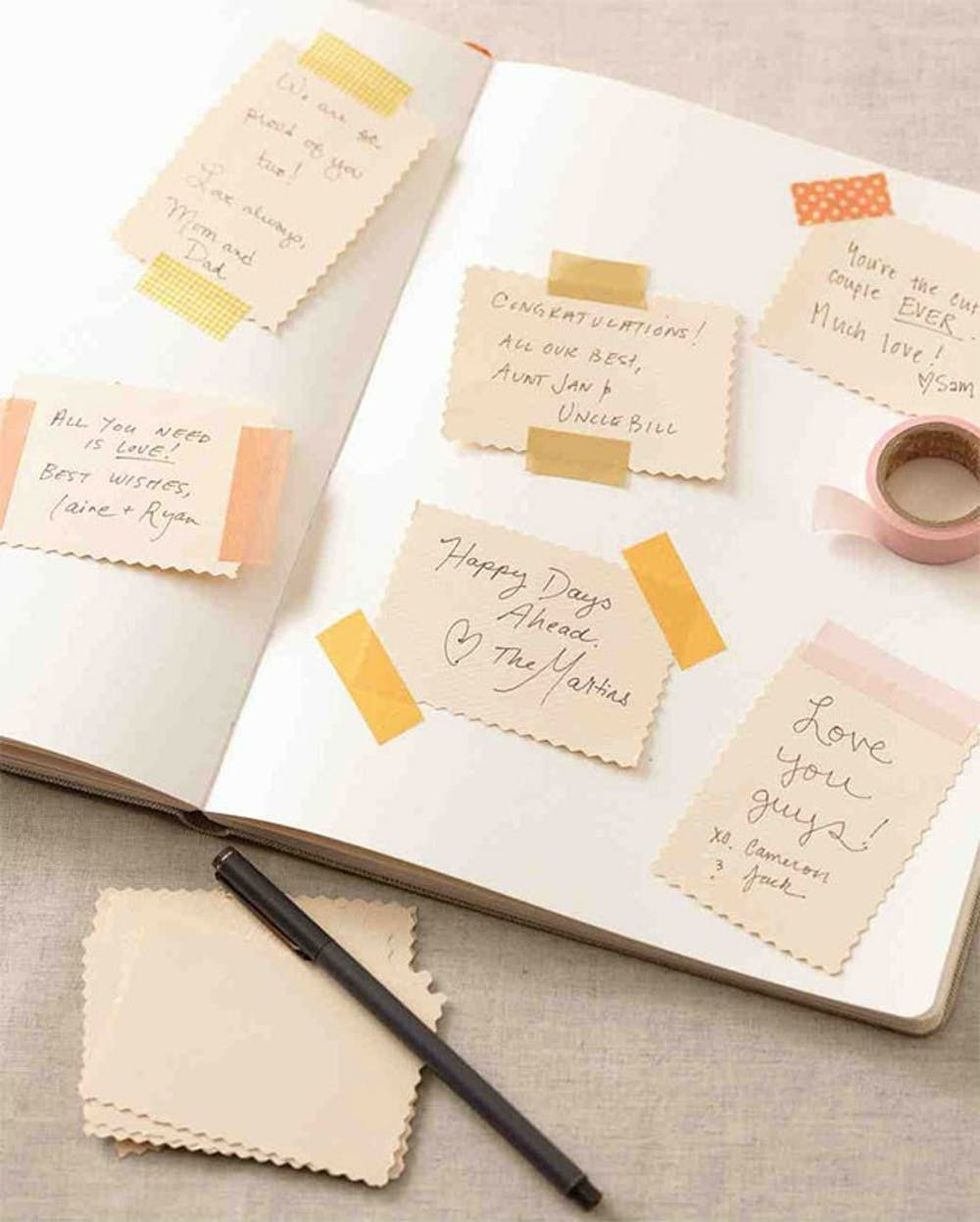 We are so
proud of you
two!
Love always,
Mom and
Dad
ALL YOU NEED
IS LOVE!
BEST WISHES,
laine + Ryan
CONGRATULATIONS!
ALL OUR BEST,
AUNT JAN &
UNCLE BILL
You're the cut
couple EVER.
Much love!
♡Sam
Happy Days
Ahead.
♡ The Martins
Love
you
guys!
xo, Cameron
& Jack